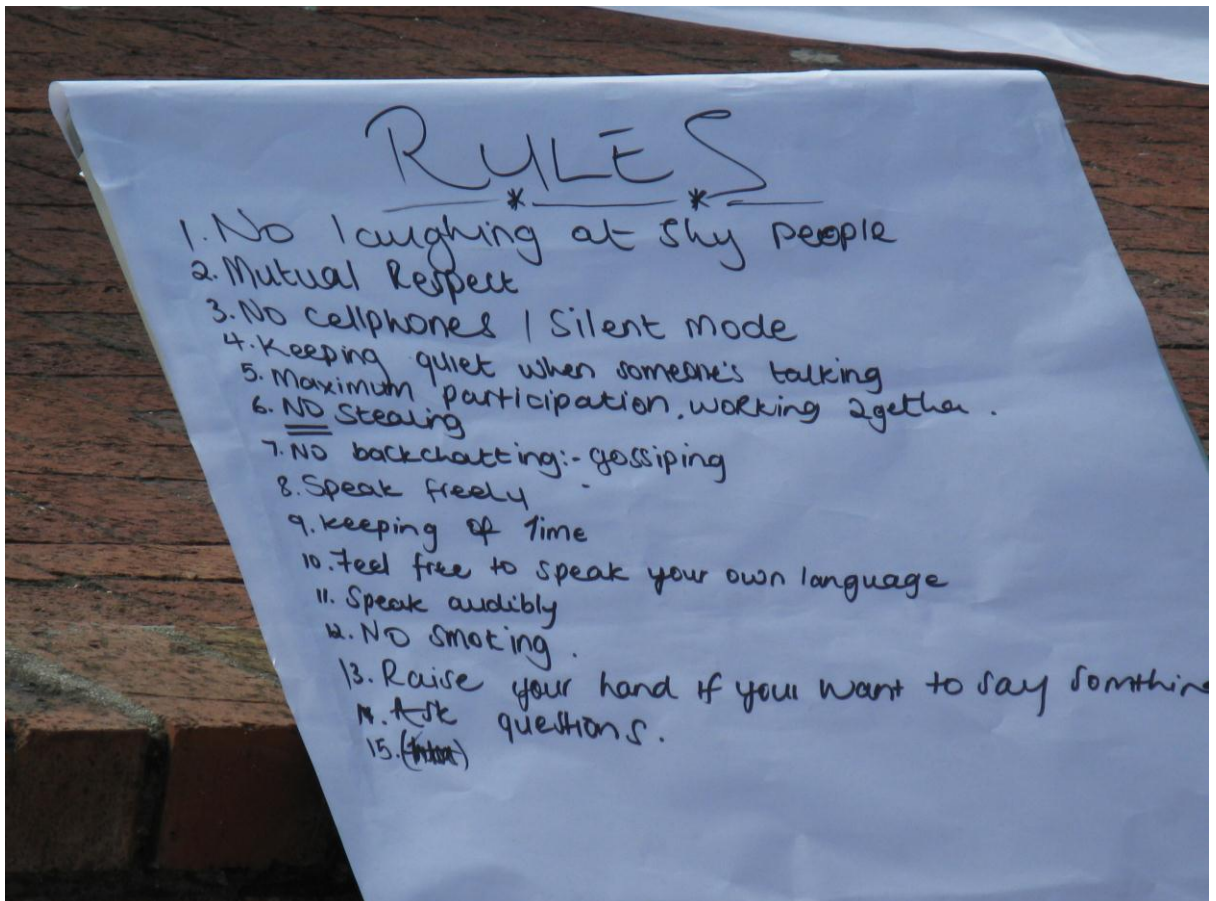 RULES
1. No laughing at shy people
2. Mutual Respect
3. No cellphones / Silent mode
4. Keeping quiet when someone's talking
5. Maximum participation, working 2gether.
6. NO Stealing
7. NO backchatting:- gossiping
8. Speak freely
9. keeping of Time
10. Feel free to speak your own language
11. Speak audibly
12. NO smoking.
13. Raise your hand if your want to say somthin
14. Ask questions.
15.